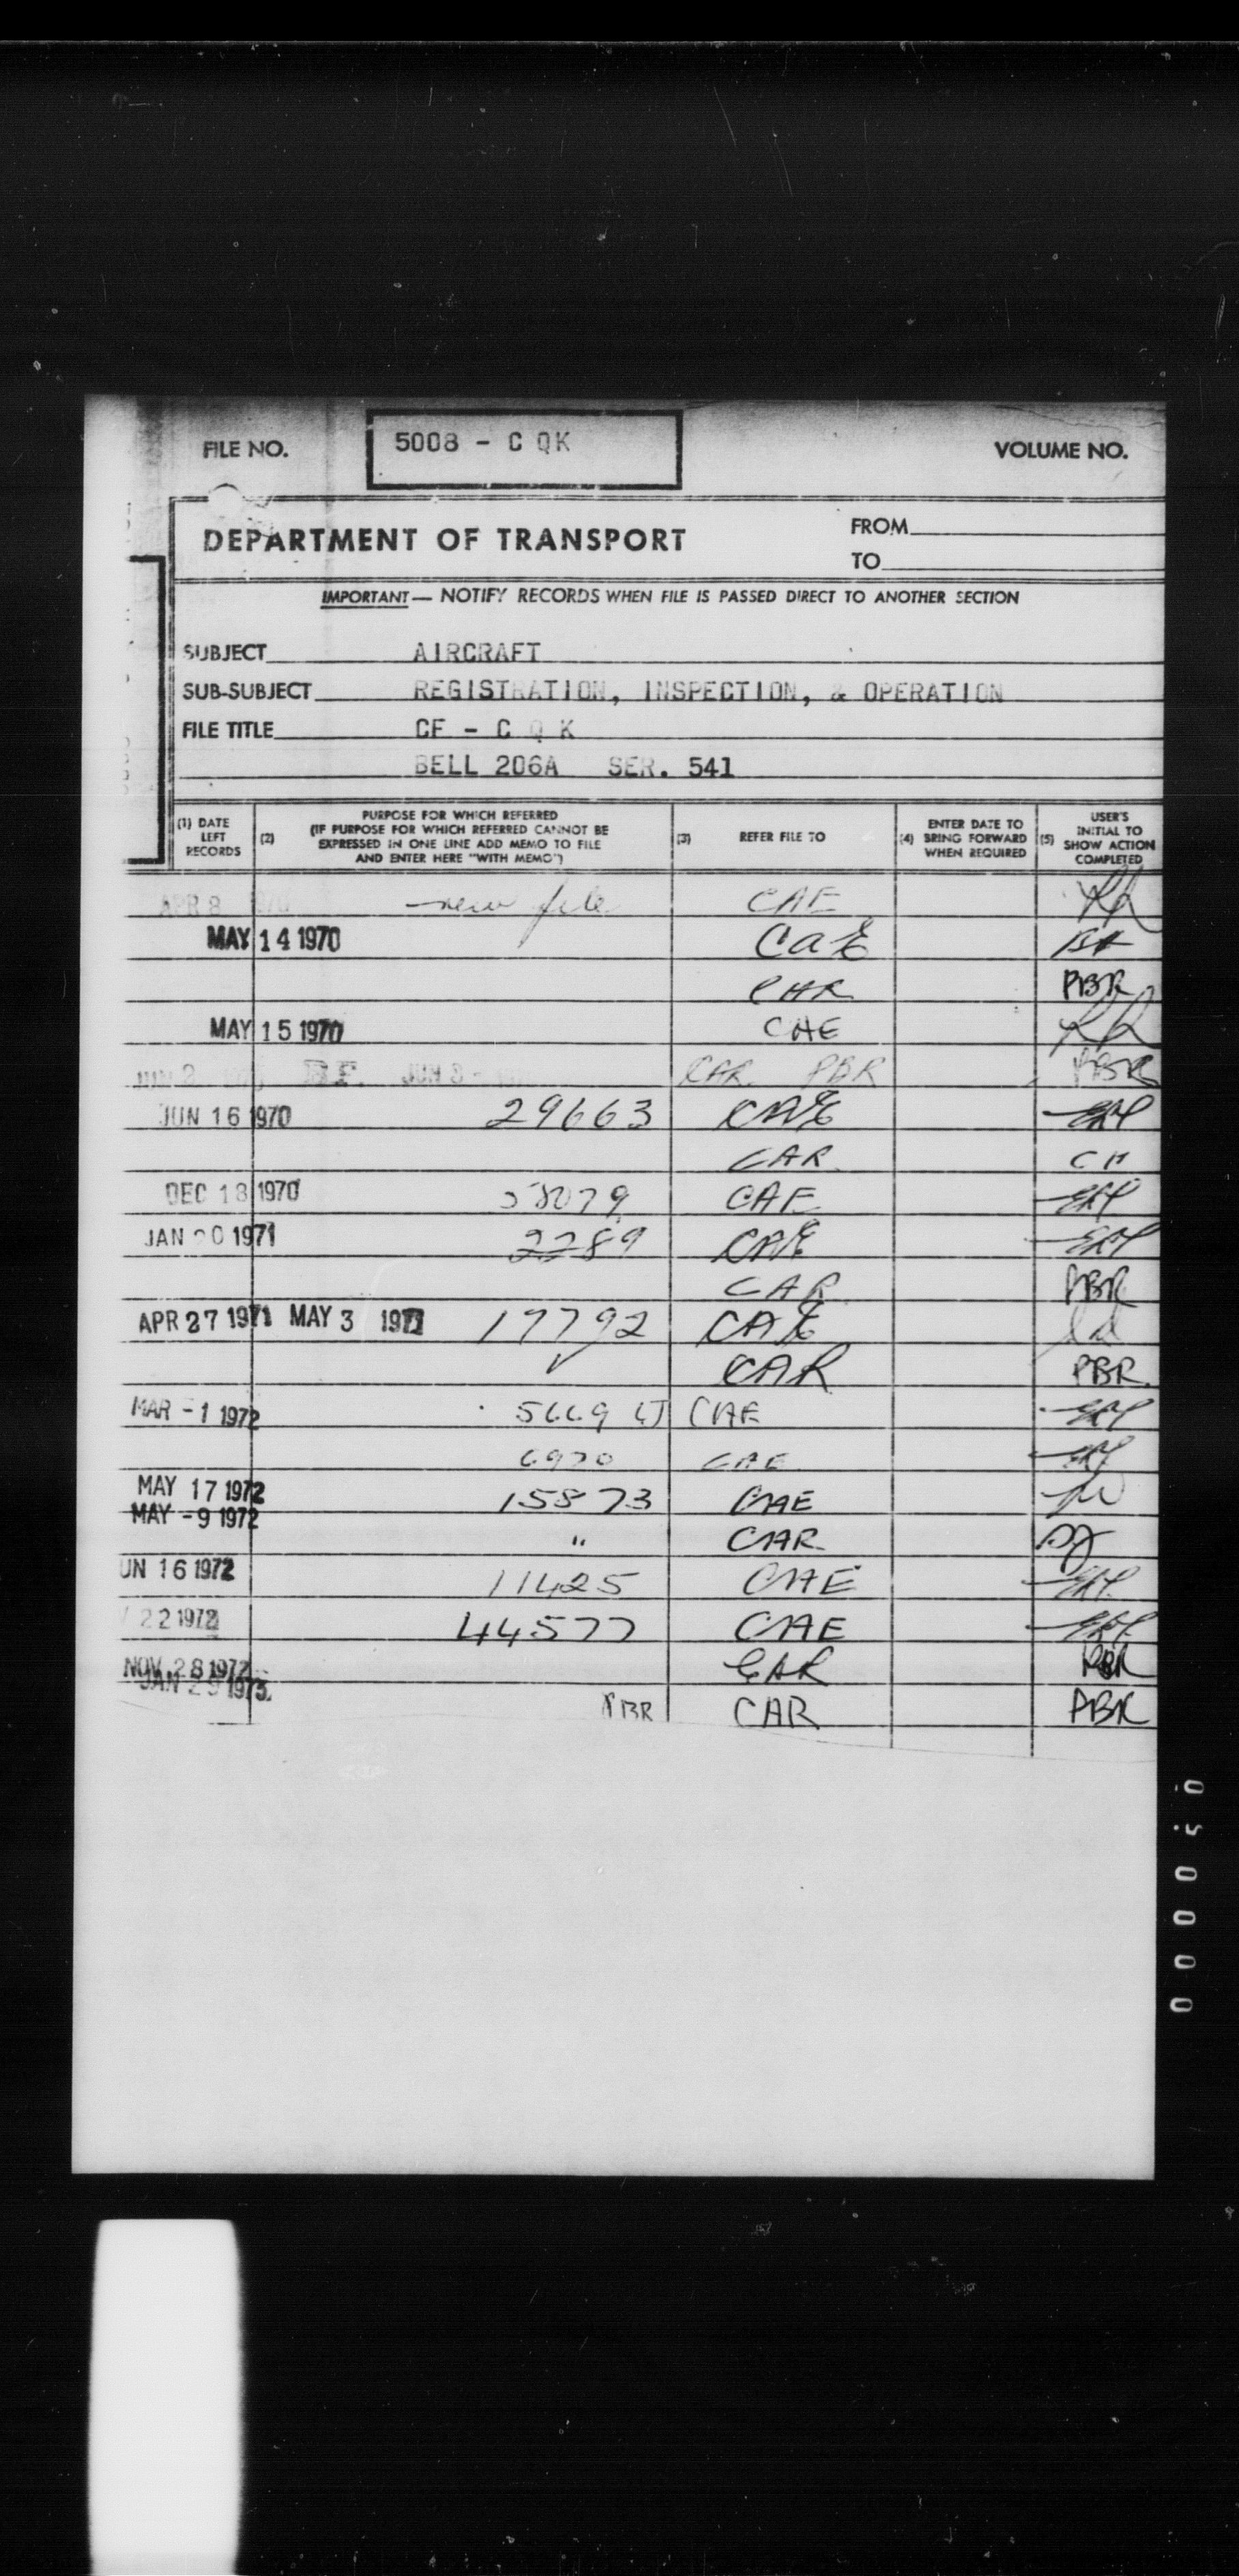 FILE NO. 5008 - C QK VOLUME NO.
DEPARTMENT OF TRANSPORT
FROM
TO
IMPORTANT — NOTIFY RECORDS WHEN FILE IS PASSED DIRECT TO ANOTHER SECTION
SUBJECT AIRCRAFT
SUB-SUBJECT REGISTRATION, INSPECTION, & OPERATION
FILE TITLE CF - C Q K
BELL 206A SER. 541
(1) DATE LEFT RECORDS
(2) PURPOSE FOR WHICH REFERRED
(IF PURPOSE FOR WHICH REFERRED CANNOT BE
EXPRESSED IN ONE LINE ADD MEMO TO FILE
AND ENTER HERE "WITH MEMO")
(3) REFER FILE TO
(4) ENTER DATE TO BRING FORWARD WHEN REQUIRED
(5) USER'S INITIAL TO SHOW ACTION COMPLETED
APR 8 1970 new file CAE
MAY 14 1970 CAE
CAR PBR
MAY 15 1970 CAE
B.F. JUN 8 CAR PBR PBR
JUN 16 1970 29663 CAE
CAR CH
DEC 18 1970 58079 CAE
JAN 20 1971 2289 CAE
CAR PBR
APR 27 1971 MAY 3 1971 17792 CAE
CAR PBR
MAR -1 1972 CAE
6970 CAE
MAY 17 1972
MAY -9 1972 15873 CAE
" CAR
UN 16 1972 11425 CAE
22 1972 44577 CAE
NOV 28 1972 CAR PBR
JAN 29 1973 PBR CAR PBR
000050